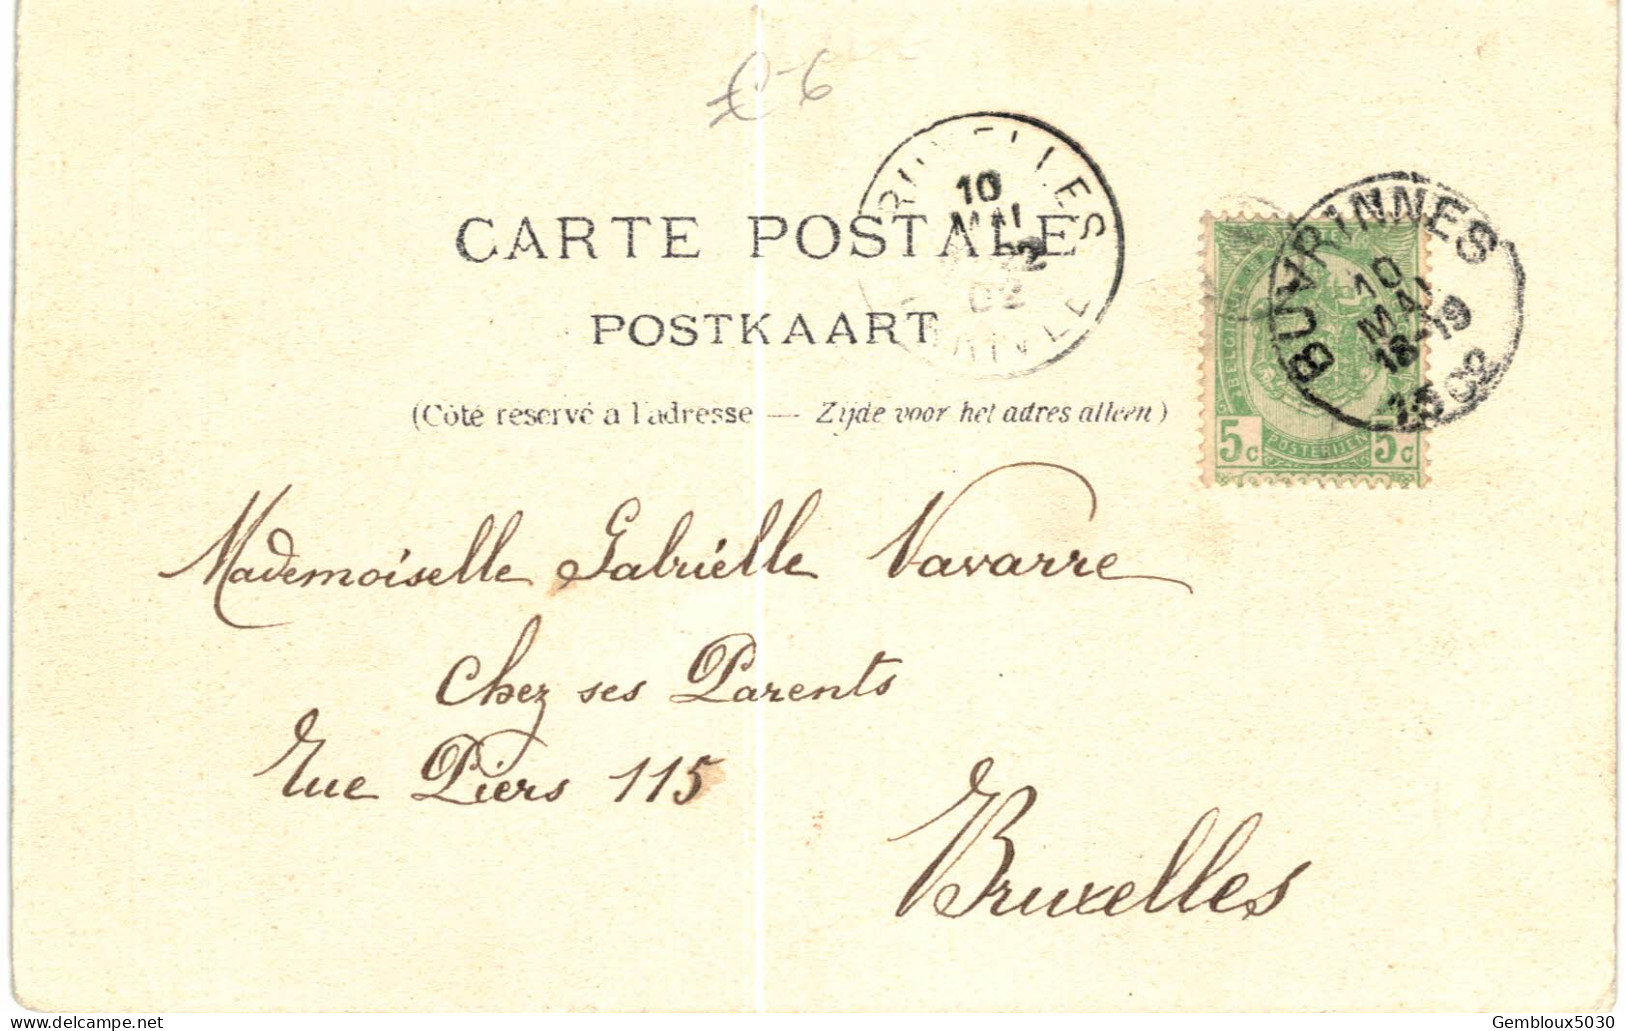 €-6
CARTE POSTALE
POSTKAART
(Côté réservé a l'adresse — Zijde voor het adres alleen)
10
MAI
22
02
BUVRINNES
10
MAI
18-19
1902
BELGIQUE
5c POSTERIJEN 5c
Mademoiselle Gabrielle Navarre
Chez ses Parents
Rue Piers 115
Bruxelles
delcampe.net
Gembloux5030